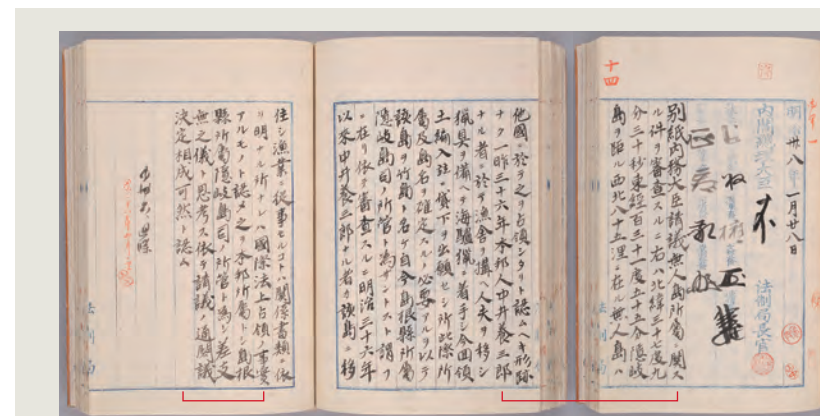 十四
卅八年一月廿八日
内閣総理大臣
法制局長官
別紙内務大臣請議無人島所屬ニ關ス
ル件ヲ審査スルニ右ハ北緯三十七度九
分三十秒東經百三十一度五十五分隱岐
島ヲ距ル西北八十五浬ニ在ル無人島ハ
他國ニ於テ之ヲ占領シタリト認ムヘキ形跡
ナク一昨三十六年本邦人中井養三郎
ナル者ニ於テ漁舍ヲ構ヘ人夫ヲ移シ
獵具ヲ備ヘテ海驢獵ニ着手シ今回領
土編入並ニ貸下ヲ出願セシ所此際所
屬及島名ヲ確定スルノ必要アルヲ以テ
該島ヲ竹島ト名ケ自今島根縣所屬
隱岐島司ノ所管ト爲サントスト謂フ
ニ在リ依テ審査スルニ明治三十六年
以來中井養三郎ナル者該島ニ移
住シ漁業ニ從事セルコトハ關係書類ニ依
リ明ナル所ナルハ國際法上占領ノ事實
アルモノト認メ之ヲ本邦所屬トシ島根
縣所屬隱岐島司ノ所管ト爲シ差支
無之儀ト思考ス依テ請議ノ通閣議
決定相成可然ト認ム
法制局